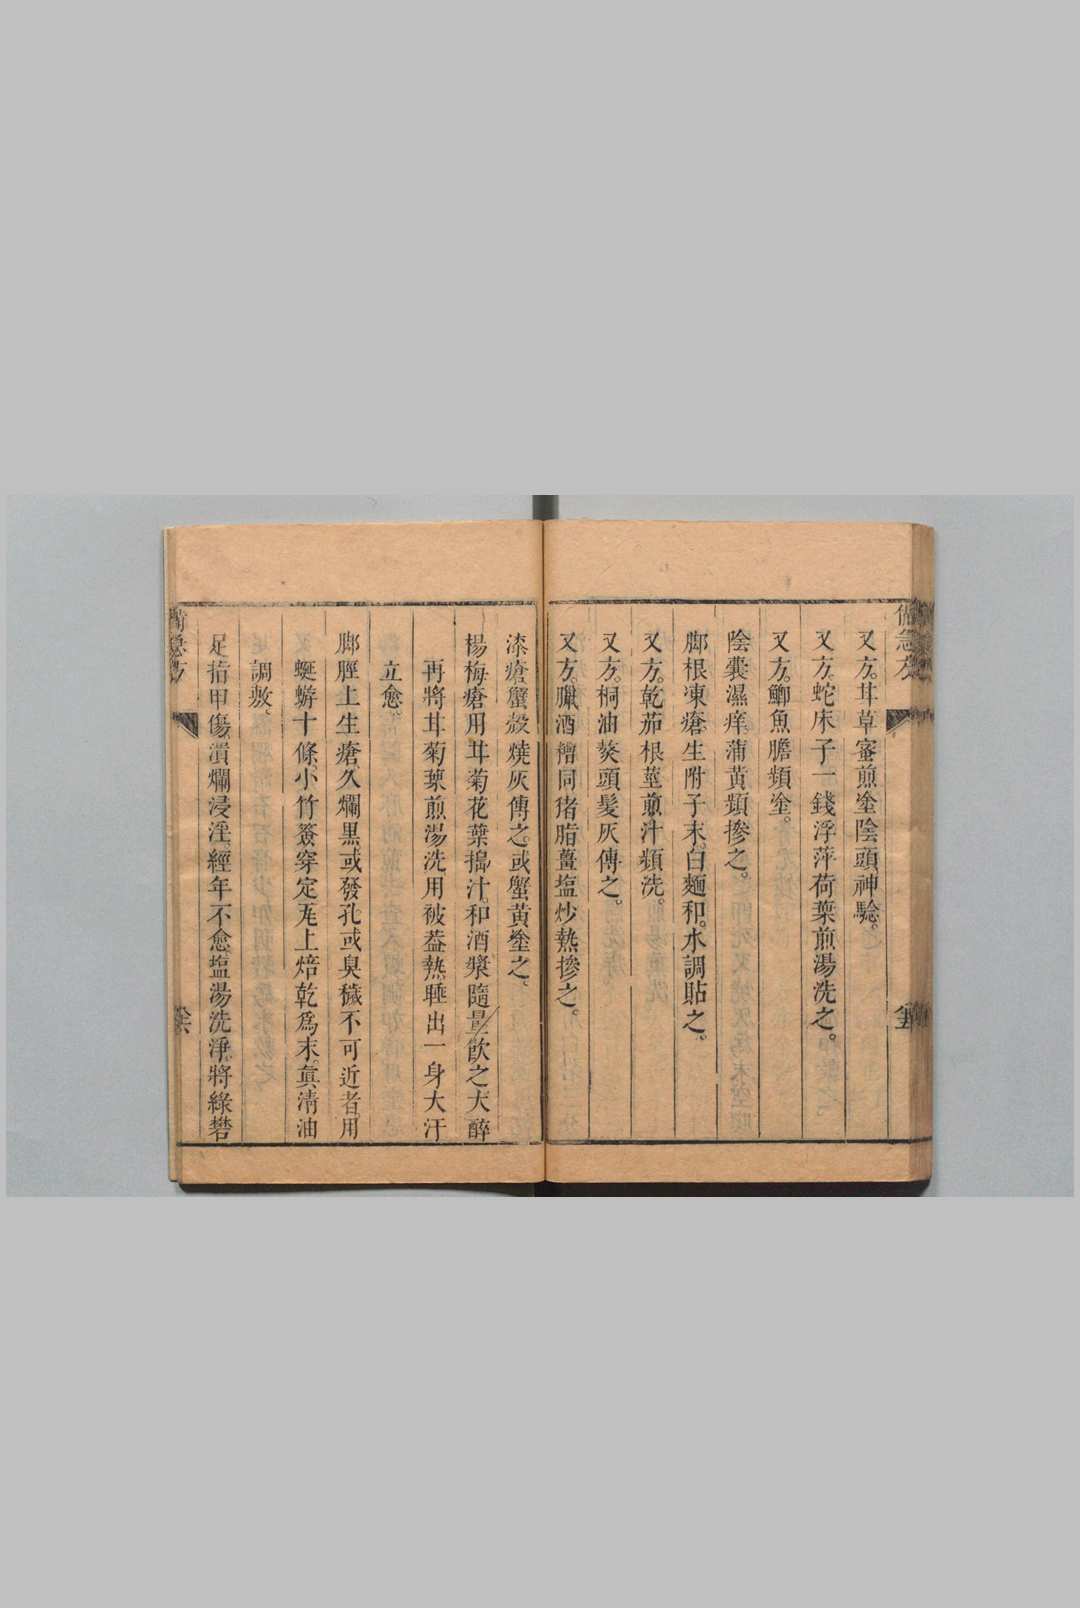 備急方
又方。甘草蜜煎塗陰頭神驗。
又方。蛇床子一錢浮萍荷葉煎湯洗之。
又方。鯽魚膽頻塗。
陰囊濕痒。蒲黃頻摻之。
脚根凍瘡。生附子末。白麵和。水調貼之。
又方。乾茄根莖煎汁頻洗。
又方。桐油熬頭髮灰傅之。
又方。臘酒糟同猪脂薑塩炒熱摻之。
漆瘡蟹殼燒灰傅之。或蟹黃塗之。
楊梅瘡用甘菊花葉搗汁。和酒漿隨量飲之大醉
再將甘菊葉煎湯洗用被葢熱睡出一身大汗
立愈。
脚脛上生瘡、久爛黑或發孔或臭穢不可近者。用
蜒蝣十條。小竹簽穿定瓦上焙乾爲末。眞清油
調敷。
足指甲傷。潰爛浸淫。經年不愈。塩湯洗淨。將綠礬
備急方